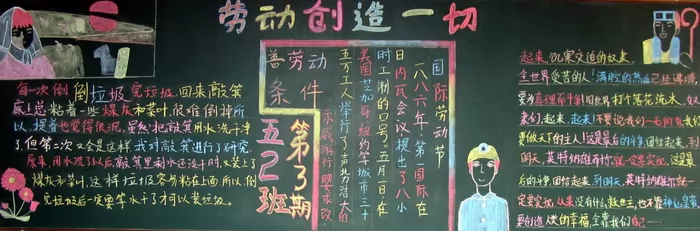 劳动创造一切
每一次倒倒垃圾完垃圾回来敲筑
底上总粘着一些煤灰和菜叶，很难倒掉所
以，提着也觉得很沉，虽然把敲筑用水洗干净
了但第二次又会是这样，我对敲筑进行了研究，
原来，用水洗了以后敲筑里剩水还没干时，又装上了
煤灰和菜叶，这样垃圾容易粘在上面，所以，倒
完垃圾后一定要等水干了才可以装垃圾。
善劳动
条件
五2班
第3期
国际劳动节
一八八六年，第一国际在
日内瓦会议提出了八小
时工制的口号。五月一日在
美国芝加哥纽约等城市三十
五万工人举行了声势浩大的
示威游行，要求改
起来，饥寒交迫的奴隶，
全世界受苦的人！满腔的热血已经沸腾
要为真理而斗争！旧世界打个落花流水，奴隶
们，起来，起来！不要说我们一无所有我们
要做天下的主人！这是最后的斗争团结起来，到
明天，英特纳雄耐尔就一定要实现，这是最
后的斗争团结起来，到明天，英特纳雄耐尔就一
定要实现，从来没有什么救世主，也不靠神仙皇帝，
要创造人类的幸福，全靠我们自己